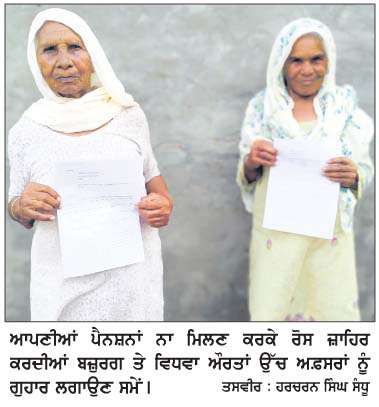 ਆਪਣੀਆਂ ਪੈਨਸ਼ਨਾਂ ਨਾ ਮਿਲਣ ਕਰਕੇ ਰੋਸ ਜ਼ਾਹਿਰ
ਕਰਦੀਆਂ ਬਜ਼ੁਰਗ ਤੇ ਵਿਧਵਾ ਔਰਤਾਂ ਉੱਚ ਅਫ਼ਸਰਾਂ ਨੂੰ
ਗੁਹਾਰ ਲਗਾਉਣ ਸਮੇਂ। ਤਸਵੀਰ : ਹਰਚਰਨ ਸਿੰਘ ਸੰਧੂ